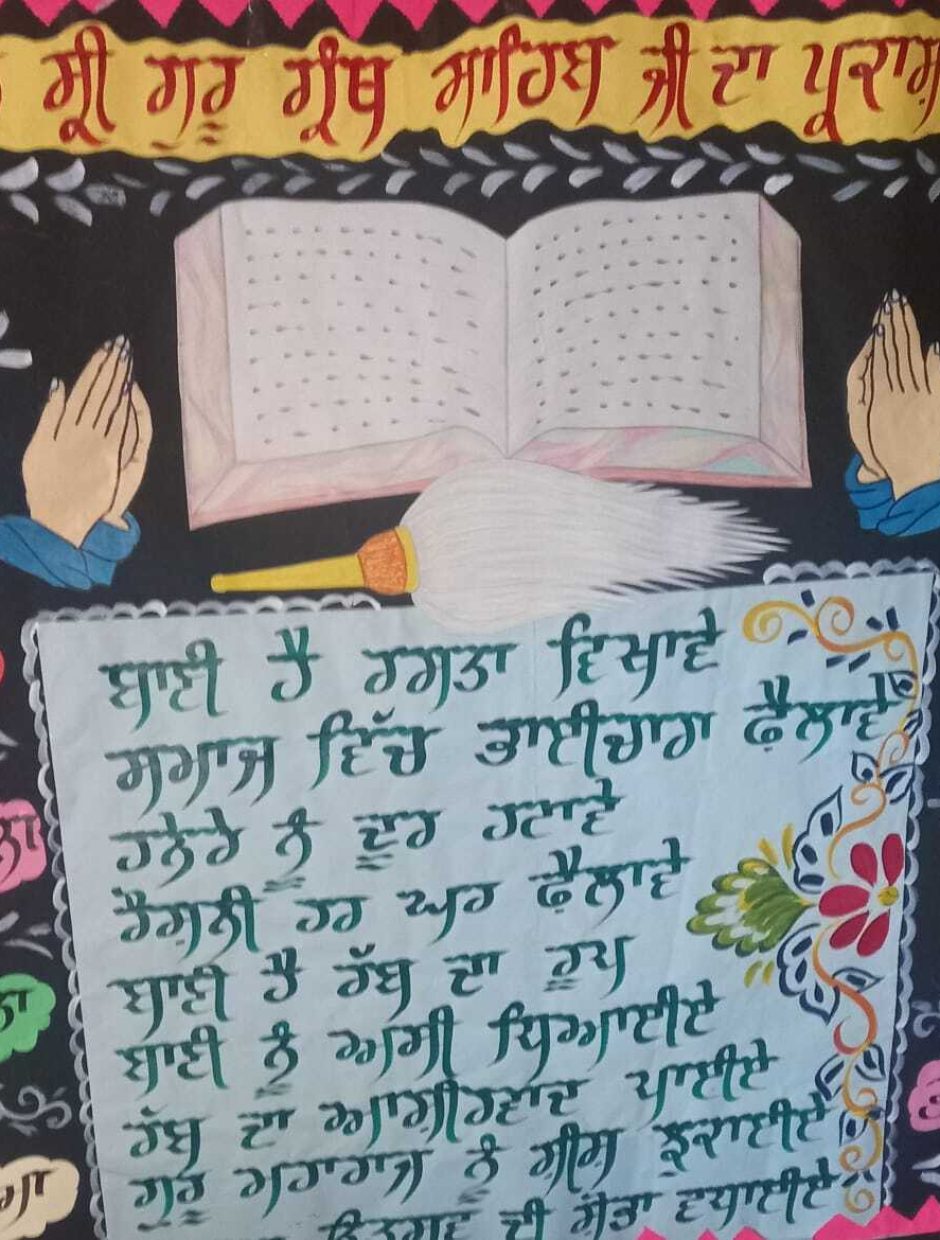 ਸ੍ਰੀ ਗੁਰੂ ਗ੍ਰੰਥ ਸਾਹਿਬ ਜੀ ਦਾ ਪ੍ਰਕਾਸ਼
ਬਾਣੀ ਹੈ ਰਸਤਾ ਦਿਖਾਵੇ
ਸਮਾਜ ਵਿੱਚ ਭਾਈਚਾਰਾ ਫ਼ੈਲਾਵੇ
ਹਨੇਰੇ ਨੂੰ ਦੂਰ ਹਟਾਵੇ
ਰੌਸ਼ਨੀ ਹਰ ਘਰ ਫ਼ੈਲਾਵੇ
ਬਾਣੀ ਹੈ ਰੱਬ ਦਾ ਰੂਪ
ਬਾਣੀ ਨੂੰ ਅਸੀਂ ਧਿਆਈਏ
ਰੱਬ ਦਾ ਆਸ਼ੀਰਵਾਦ ਪਾਈਏ
ਗੁਰੂ ਮਹਾਰਾਜ ਨੂੰ ਸੀਸ਼ ਝੁਕਾਈਏ
ਦੀ ਸ਼ੋਭਾ ਵਧਾਈਏ